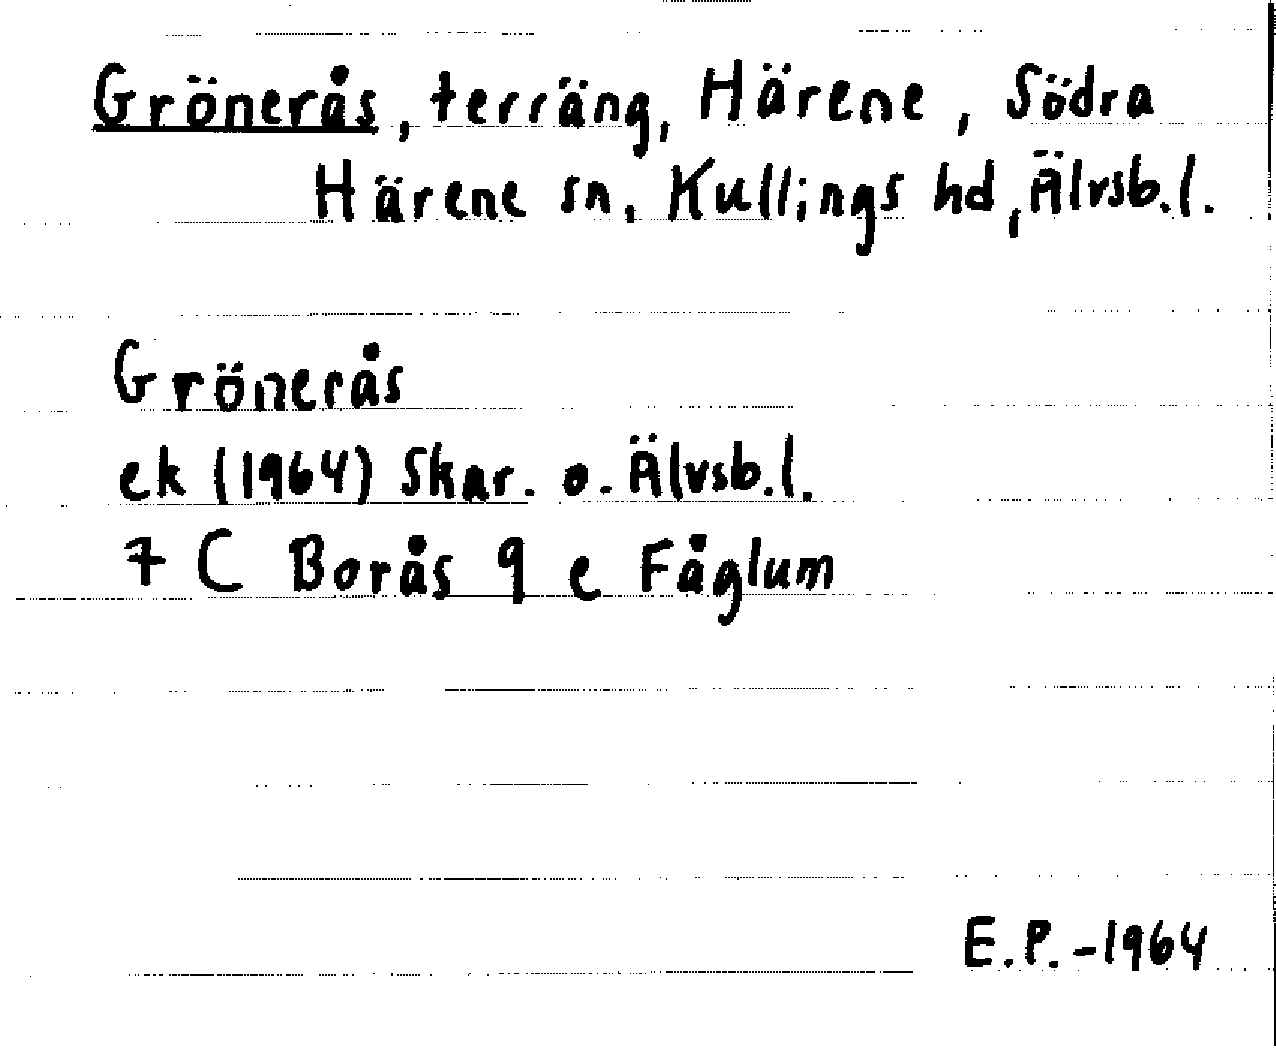 Grönerås, terräng, Härene, Södra
Härene sn, Kullings hd, Älvsb.l.
Grönerås
ek (1964) Skar. o. Älvsb.l.
7 C Borås 9 e Fåglum
E.P.-1964